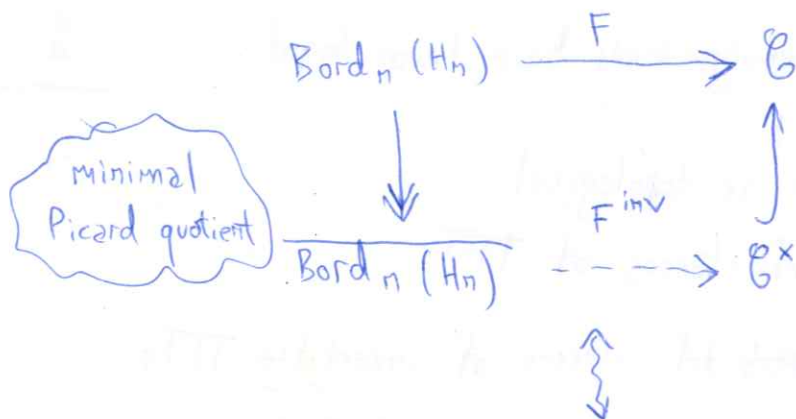 Bord_n (H_n) F 𝒞
minimal
Picard quotient
F^inv
Bord_n (H_n) 𝒞^×